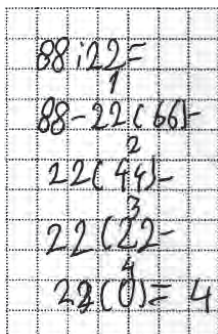 88:22=
1
88-22(66)-
2
22(44)-
3
22(22-
4
22(0)=4